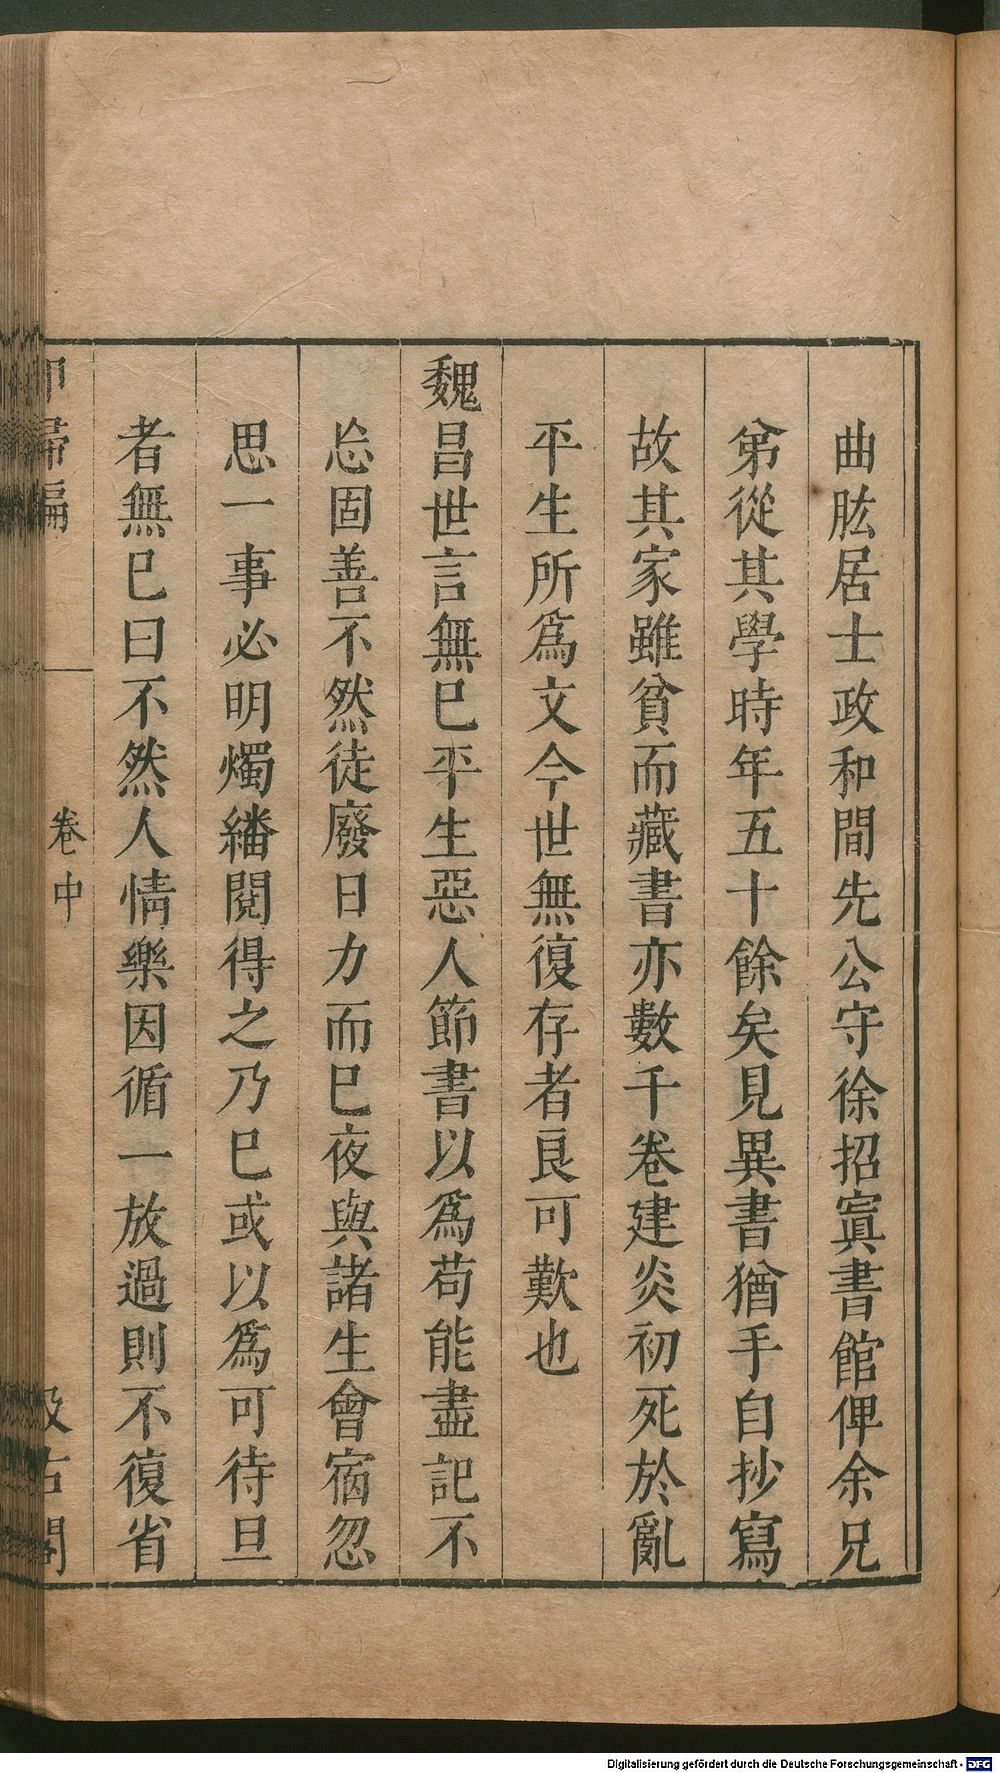 曲肱居士政和間先公守徐招寘書館俾余兄
弟從其學時年五十餘矣見異書猶手自抄寫
故其家雖貧而藏書亦數千卷建炎初死於亂
平生所爲文今世無復存者良可歎也
魏昌世言無巳平生惡人節書以爲苟能盡記不
忘固善不然徒廢日力而巳夜與諸生會宿忽
思一事必明燭繙閱得之乃巳或以爲可待旦
者無巳曰不然人情樂因循一放過則不復省
卷中
Digitalisierung gefördert durch die Deutsche Forschungsgemeinschaft - DFG